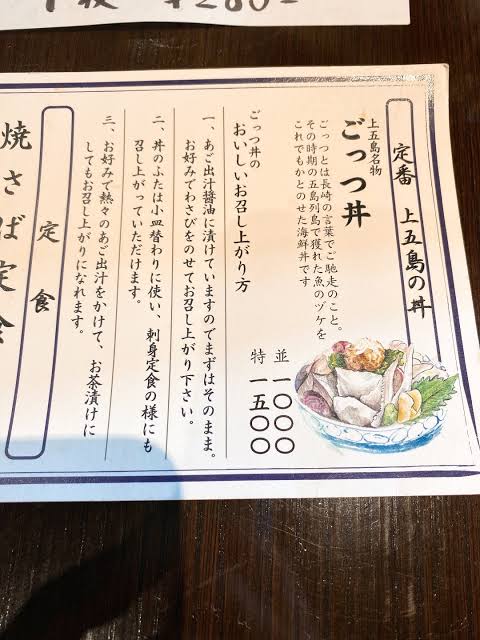 定番 上五島の丼
上五島名物
ごっつ丼
ごっつとは長崎の言葉でご馳走のこと。
その時期の五島列島で獲れた魚のヅケを
これでもかとのせた海鮮丼です
並 一〇〇〇
特 一五〇〇
ごっつ丼の
おいしいお召し上がり方
一、あご出汁醤油に漬けていますのでまずはそのまま。
お好みでわさびをのせてお召し上がり下さい。
二、丼のふたは小皿替わりに使い、刺身定食の様にも
召し上がっていただけます。
三、お好みで熱々のあご出汁をかけて、お茶漬けに
してもお召し上がりになれます。
定食
焼さば定食